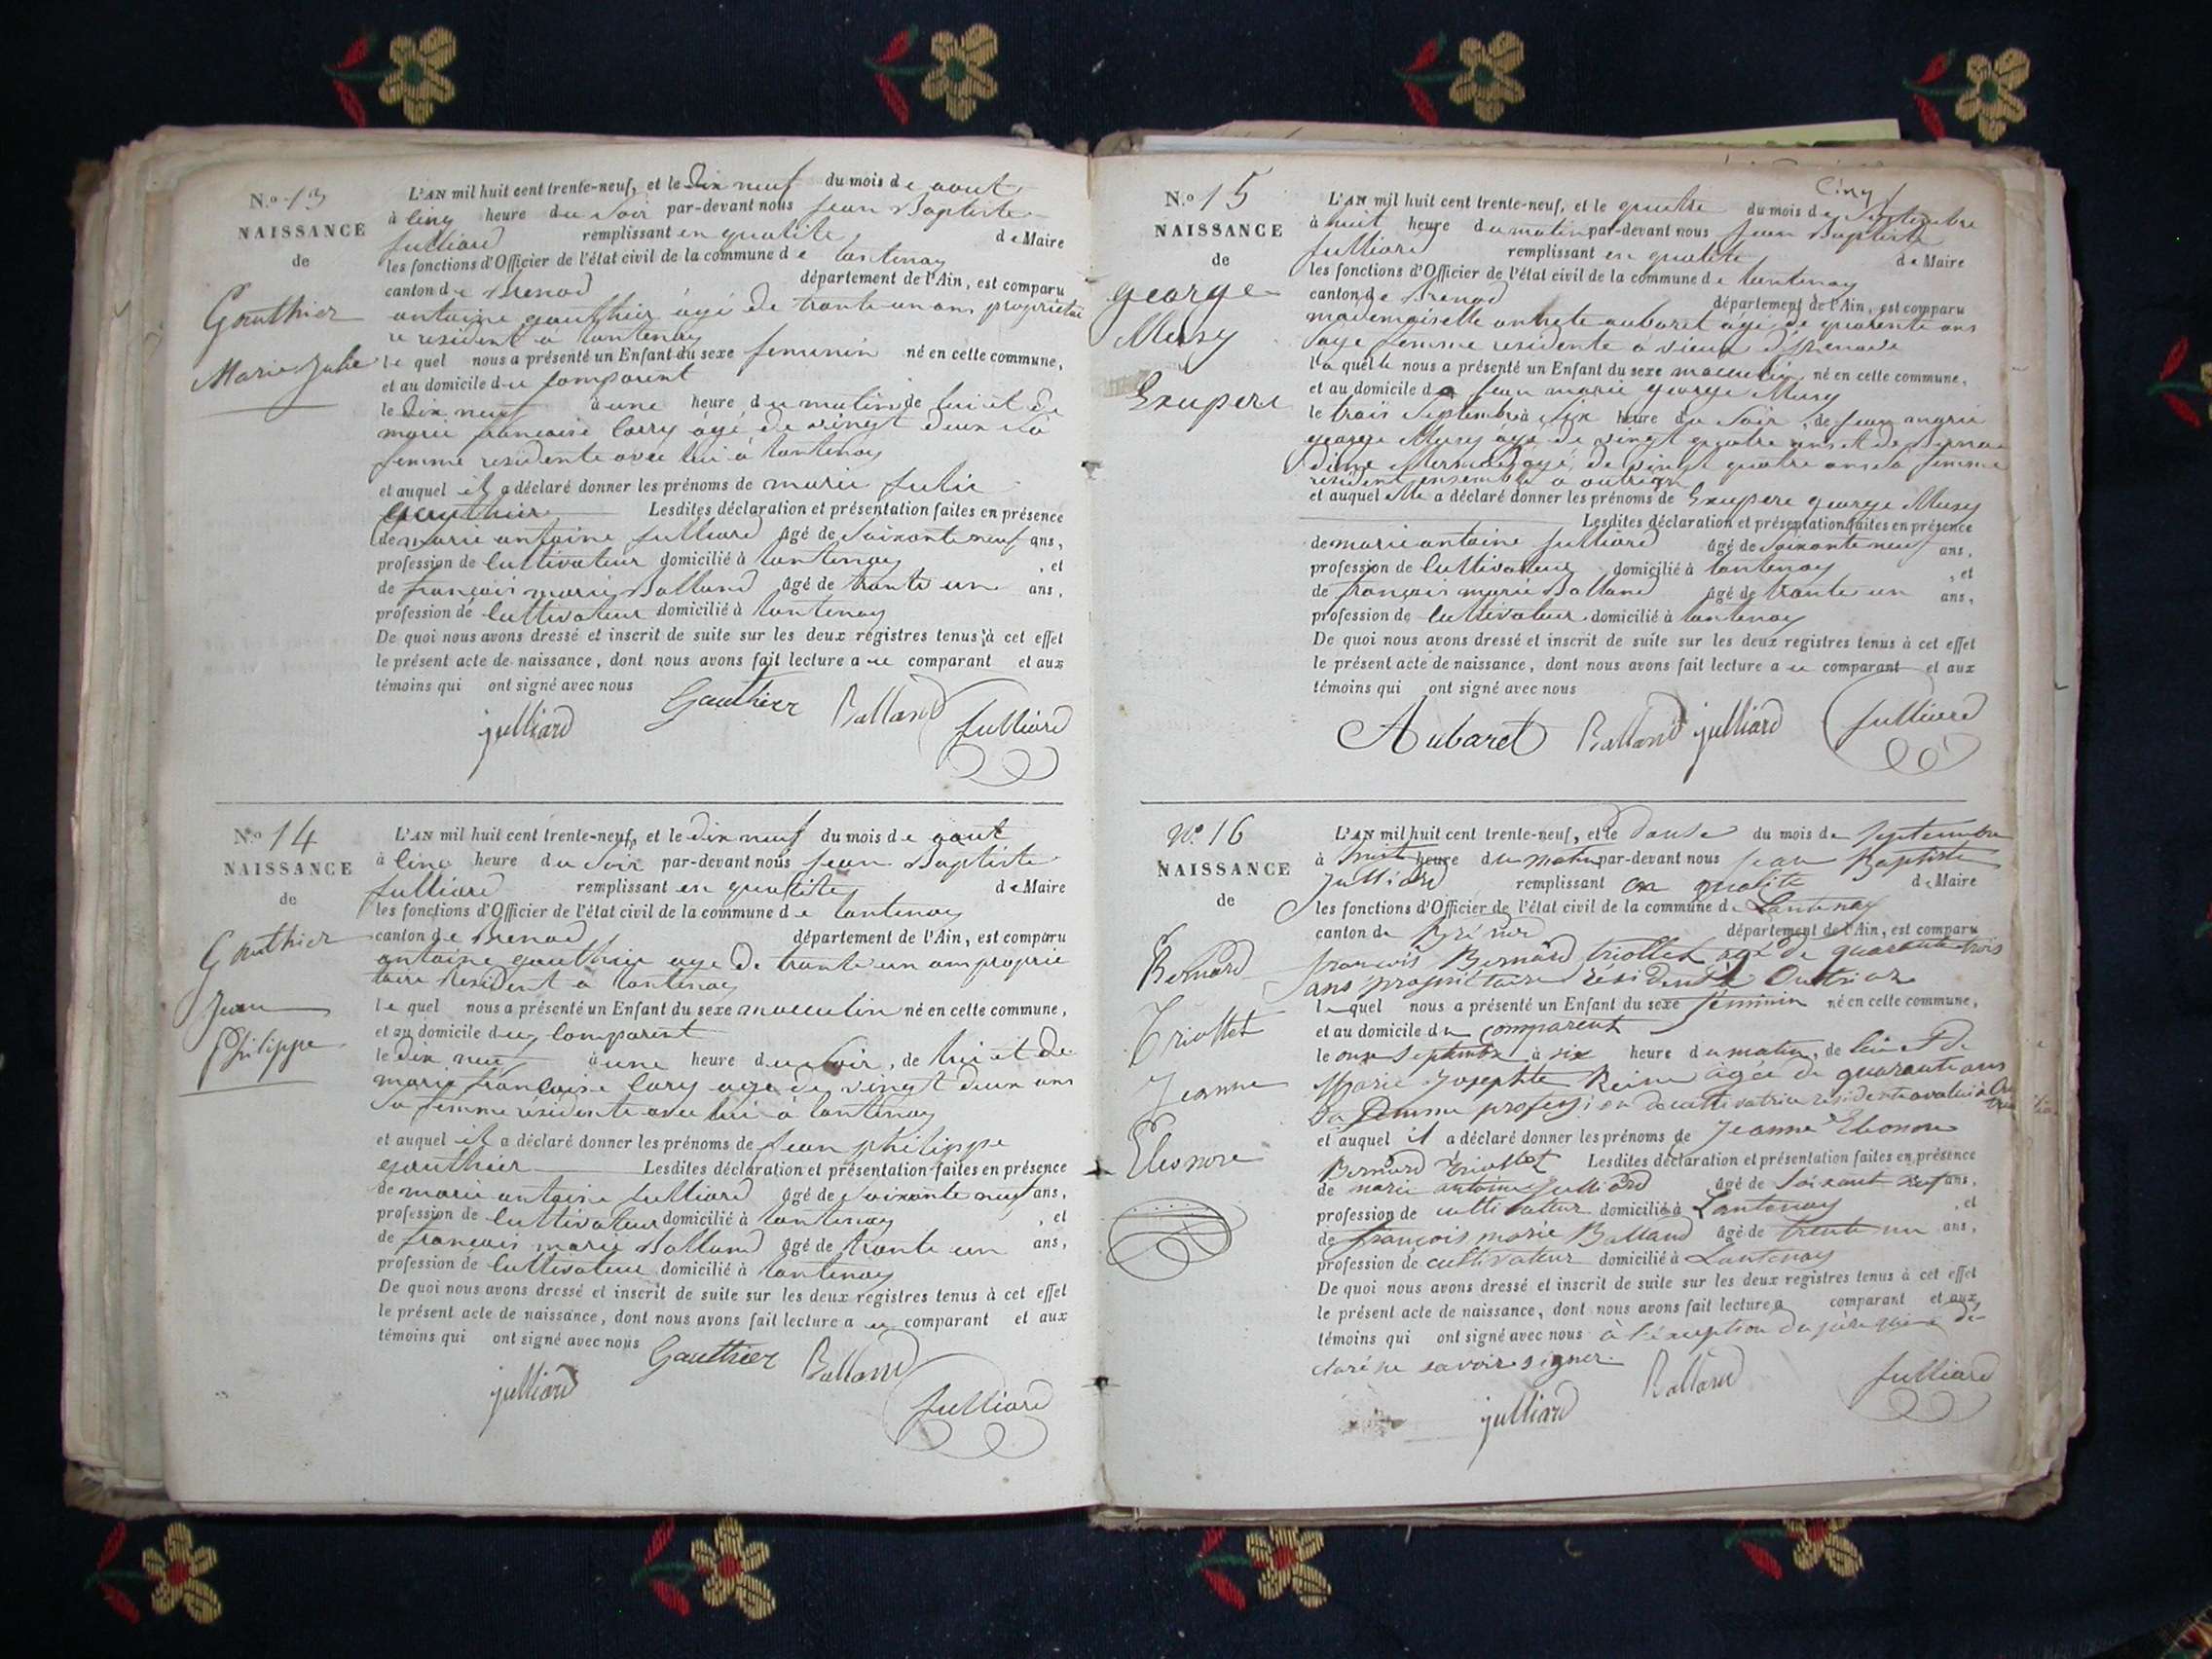 N.o 13
NAISSANCE
de
Gauthier
Marie Julie
L'AN mil huit cent trente-neuf, et le dix neuf du mois de aout
à cinq heure du soir par-devant nous jean Baptiste
julliard remplissant en qualité de Maire
les fonctions d'Officier de l'état civil de la commune de lantenay
canton de Brenod département de l'Ain, est comparu
antoine gauthier âgé de trante un ans propriétai
re resident a lantenay
le quel nous a présenté un Enfant du sexe feminin né en cette commune,
et au domicile du comparent
le dix neuf à une heure du matin de lui et de
marie francoise Carry âgé de vingt deux sa
femme residente avec lui à lantenay
et auquel il a déclaré donner les prénoms de marie julie
gauthier Lesdites déclaration et présentation faites en présence
de marie antoine julliard âgé de soixante neuf ans,
profession de cultivateur domicilié à lantenay , et
de francois marie Balland âgé de trante un ans,
profession de cultivateur domicilié à lantenay
De quoi nous avons dressé et inscrit de suite sur les deux registres tenus à cet effet
le présent acte de naissance, dont nous avons fait lecture a u comparant et aux
témoins qui ont signé avec nous
Gauthier Balland
julliard julliard
N.o 14
NAISSANCE
de
Gauthier
Jean
Philippe
L'AN mil huit cent trente-neuf, et le dix neuf du mois de aout
à cinq heure du soir par-devant nous jean Baptiste
julliard remplissant en qualité de Maire
les fonctions d'Officier de l'état civil de la commune de lantenay
canton de Brenod département de l'Ain, est comparu
antoine gauthier age de trante un an proprie
taire resident a lantenay
le quel nous a présenté un Enfant du sexe masculin né en cette commune,
et au domicile du comparent
le dix neuf à une heure du soir, de lui et de
marie francaise Cary agee de vingt deux ans
sa femme residente avec lui à lantenay
et auquel il a déclaré donner les prénoms de jean philippe
gauthier Lesdites déclaration et présentation faites en présence
de marie antoine julliard âgé de soixante neuf ans,
profession de cultivateur domicilié à lantenay , et
de francois marie Balland âgé de trante un ans,
profession de cultivateur domicilié à lantenay
De quoi nous avons dressé et inscrit de suite sur les deux registres tenus à cet effet
le présent acte de naissance, dont nous avons fait lecture a u comparant et aux
témoins qui ont signé avec nous Gauthier Balland
julliard julliard
N.o 15
NAISSANCE
de
george
Musy
Exupere
Cinq
L'AN mil huit cent trente-neuf, et le quatre du mois de Septembre
à huit heure du matin par-devant nous jean Baptiste
julliard remplissant en qualité de Maire
les fonctions d'Officier de l'état civil de la commune de lantenay
canton de Brenod département de l'Ain, est comparu
mademoiselle aubaret âgé de quarente ans
sage femme residente à vieux d'
la quelle nous a présenté un Enfant du sexe masculin né en cette commune,
et au domicile de jean marie george Musy
le trois septembre à six heure du soir, de jean marie
george Musy âgé de vingt quatre ans et de Bernar
dine âgé de vingt quatre ans sa femme
resident ensemble a outriaz
et auquel elle a déclaré donner les prénoms de Exupere george Musy
Lesdites déclaration et présentation faites en présence
de marie antoine julliard âgé de soixante neuf ans,
profession de cultivateur domicilié à lantenay , et
de francois marie Balland âgé de trante un ans,
profession de cultivateur domicilié à lantenay
De quoi nous avons dressé et inscrit de suite sur les deux registres tenus à cet effet
le présent acte de naissance, dont nous avons fait lecture a u comparant et aux
témoins qui ont signé avec nous
Aubaret Balland julliard julliard
N.o 16
NAISSANCE
de
Bernard
Triollet
Jeanne
Eleonore
L'AN mil huit cent trente-neuf, et le douse du mois de septembre
à huit heure du matin par-devant nous jean Baptiste
julliard remplissant en qualité de Maire
les fonctions d'Officier de l'état civil de la commune de Lantenay
canton de Brénod département de l'Ain, est comparu
françois Bernard triollet agé de quarante trois
ans propriétaire résident à Outriaz
le quel nous a présenté un Enfant du sexe féminin né en cette commune,
et au domicile du comparent
le onze septembre à six heure du matin, de lui et de
Marie Josephte Reine agée de quarante ans
sa femme profession de cultivatrice residente avec lui à Ou
triaz
et auquel il a déclaré donner les prénoms de Jeanne Eleonore
Bernard Triollet Lesdites déclaration et présentation faites en présence
de marie antoine julliard âgé de soixant neuf ans,
profession de cultivateur domicilié à Lantenay , et
de françois marie Balland âgé de trente un ans,
profession de cultivateur domicilié à Lantenay
De quoi nous avons dressé et inscrit de suite sur les deux registres tenus à cet effet
le présent acte de naissance, dont nous avons fait lecture a comparant et aux
témoins qui ont signé avec nous à l'exception du père qui a dé
claré ne savoir signer.
julliard Balland julliard